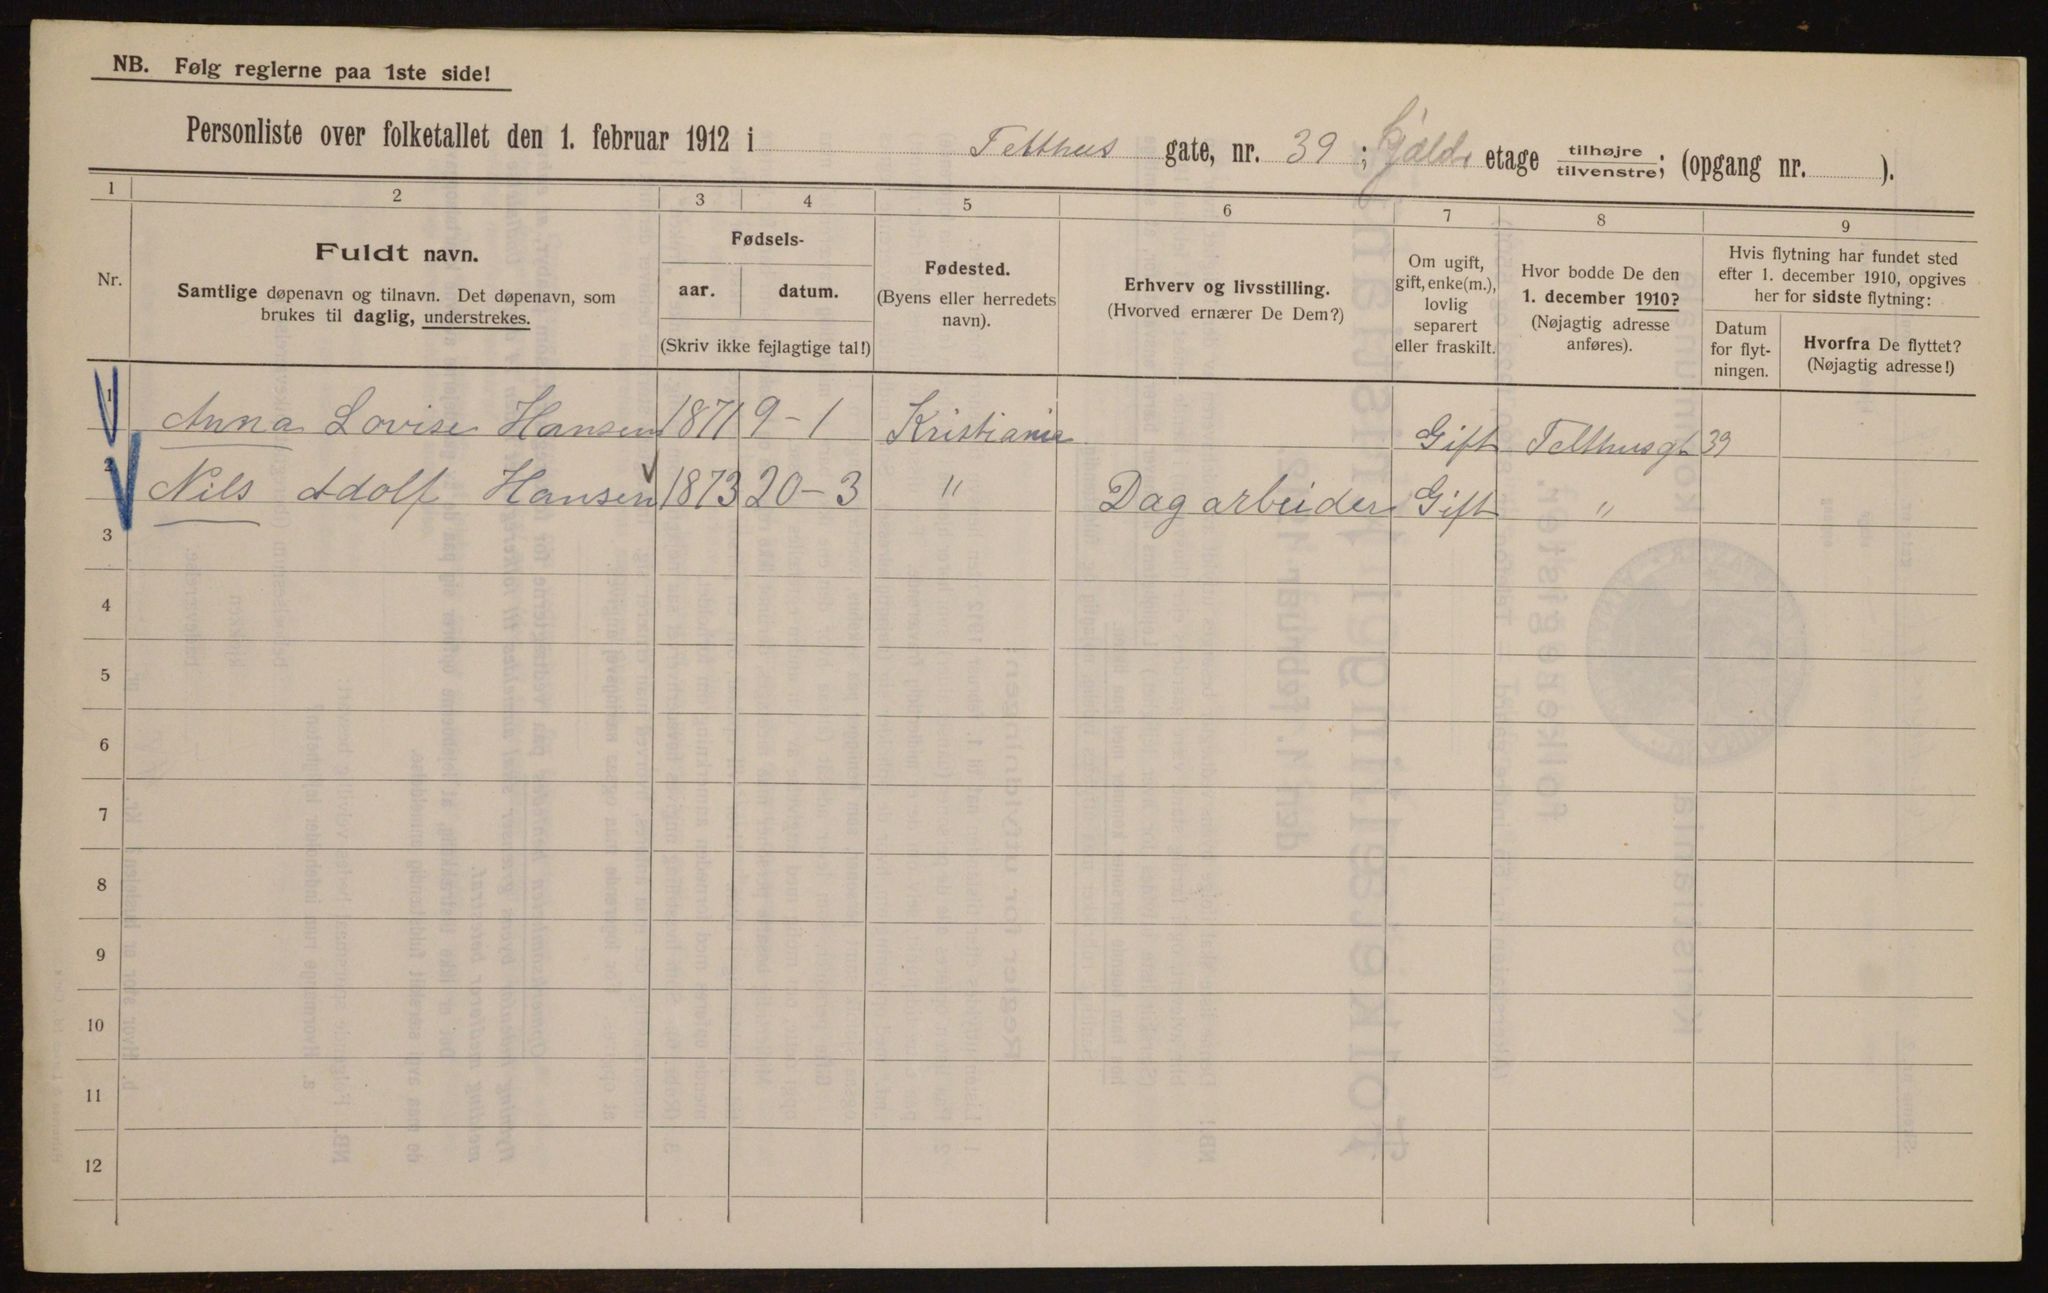 NB. Følg reglerne paa 1ste side!
Personliste over folketallet den 1. februar 1912 i Telthus gate, nr. 39 ; etage tilhøjre tilvenstre; (opgang nr. ).
1 2 3 4 5 6 7 8 9
Nr.
Fuldt navn.
Samtlige døpenavn og tilnavn. Det døpenavn, som
brukes til daglig, understrekes.
Fødsels-
aar. datum.
(Skriv ikke fejlagtige tal!)
Fødested.
(Byens eller herredets
navn).
Erhverv og livsstilling.
(Hvorved ernærer De Dem?)
Om ugift,
gift, enke(m.),
lovlig
separert
eller fraskilt.
Hvor bodde De den
1. december 1910?
(Nøjagtig adresse
anføres).
Hvis flytning har fundet sted
efter 1. december 1910, opgives
her for sidste flytning:
Datum
for flyt-
ningen.
Hvorfra De flyttet?
(Nøjagtig adresse!)
1 Anna Lovise Hansen 1871 9-1 Kristiania Gift Telthusgt 39
2 Nils Adolf Hansen 1873 20-3 " Dagarbeider Gift "
3
4
5
6
7
8
9
10
11
12